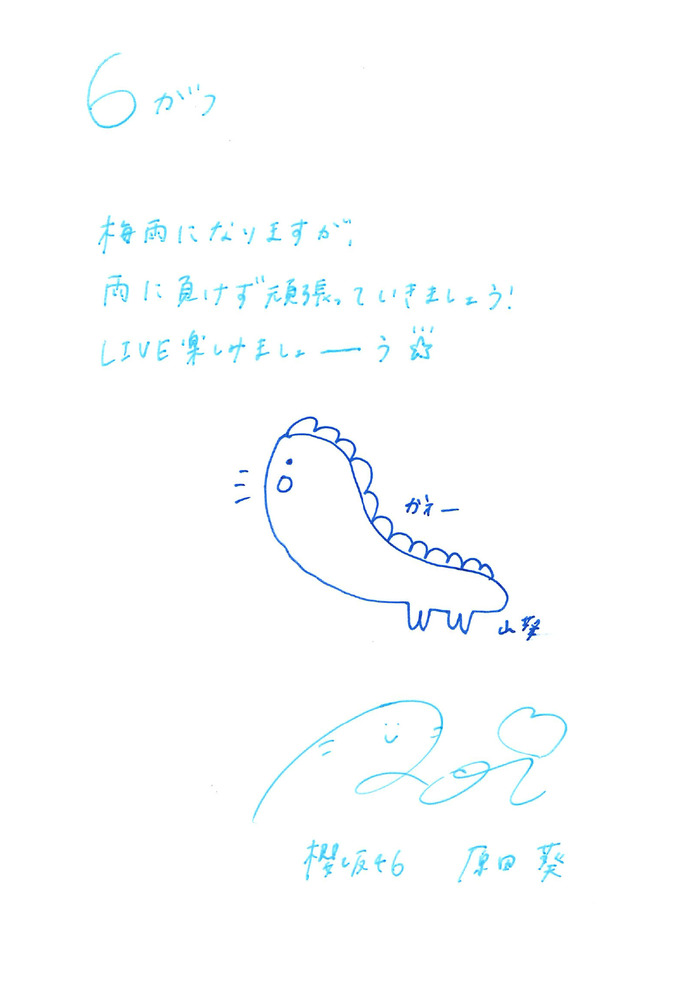 6がつ
梅雨になりますが、
雨に負けず頑張っていきましょう!
LIVE楽しみましょーう
がおー
山葵
櫻坂46 原田葵